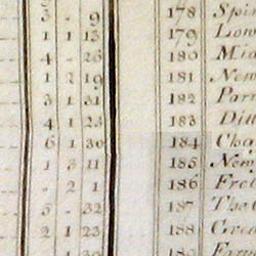 3 - 9 178 Spi
1 1 13 179 Low
4 - 26 180 Mid
1 2 19 181 New
3 1 31 182 Parr
4 1 23 183 Ditt
6 1 30 184 Cha
1 3 11 185 New
- 2 1 186 Fret
5 - 32 187 The
2 1 23 188 Crea
1 30 189 Farm